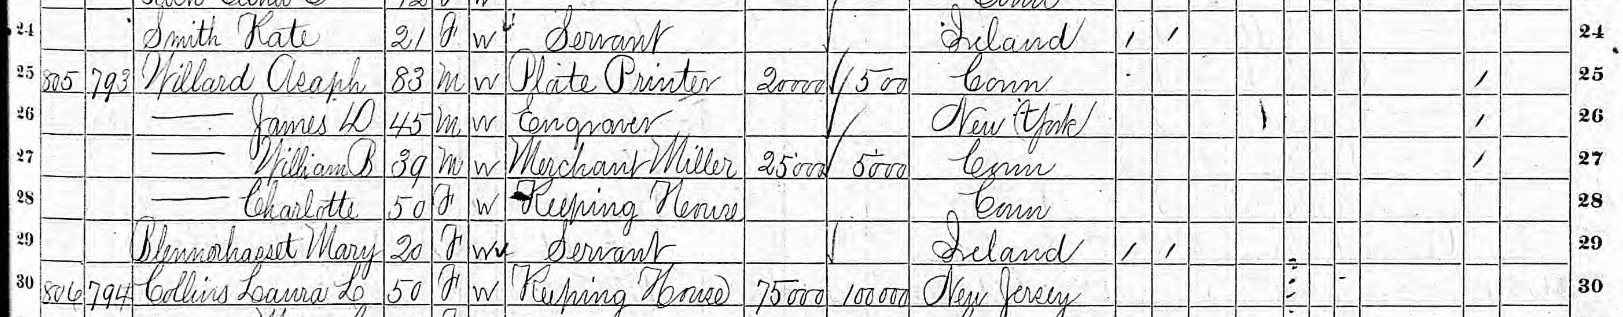 24 Smith Kate 21 F W Servant Ireland / / 24
25 805 793 Willard Asaph 83 M W Plate Printer 20000 1500 Conn / 25
26 —— James D 45 M W Engraver New York / / 26
27 —— William B 39 M W Merchant Miller 25000 5000 Conn / 27
28 —— Charlotte 50 F W Keeping House Conn 28
29 Blennorhasset Mary 20 F W Servant Ireland / / 29
30 806 794 Collins Laura L 50 F W Keeping House 75000 100000 New Jersey 30